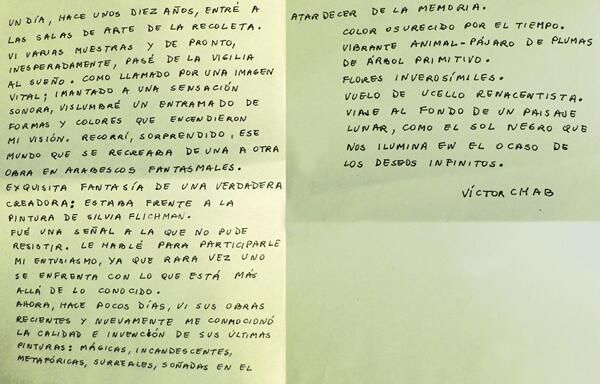 UN DÍA, HACE UNOS DIEZ AÑOS, ENTRÉ A
LAS SALAS DE ARTE DE LA RECOLETA.
VI VARIAS MUESTRAS Y DE PRONTO,
INESPERADAMENTE, PASÉ DE LA VIGILIA
AL SUEÑO. COMO LLAMADO POR UNA IMAGEN
VITAL; IMANTADO A UNA SENSACIÓN
SONORA, VISLUMBRÉ UN ENTRAMADO DE
FORMAS Y COLORES QUE ENCENDIERON
MI VISIÓN. RECORRÍ, SORPRENDIDO, ESE
MUNDO QUE SE RECREABA DE UNA A OTRA
OBRA EN ARABESCOS FANTASMALES.
EXQUISITA FANTASÍA DE UNA VERDADERA
CREADORA: ESTABA FRENTE A LA
PINTURA DE SILVIA FLICHMAN.
FUÉ UNA SEÑAL A LA QUE NO PUDE
RESISTIR. LE HABLÉ PARA PARTICIPARLE
MI ENTUSIASMO, YA QUE RARA VEZ UNO
SE ENFRENTA CON LO QUE ESTÁ MÁS
ALLÁ DE LO CONOCIDO.
AHORA, HACE POCOS DÍAS, VI SUS OBRAS
RECIENTES Y NUEVAMENTE ME CONMOCIONÓ
LA CALIDAD E INVENCIÓN DE SUS ÚLTIMAS
PINTURAS: MÁGICAS, INCANDESCENTES,
METAFÓRICAS, SURREALES, SOÑADAS EN EL
ATARDECER DE LA MEMORIA.
COLOR OSURECIDO POR EL TIEMPO.
VIBRANTE ANIMAL-PÁJARO DE PLUMAS
DE ÁRBOL PRIMITIVO.
FLORES INVEROSÍMILES.
VUELO DE UCELLO RENACENTISTA.
VIAJE AL FONDO DE UN PAISAJE
LUNAR, COMO EL SOL NEGRO QUE
NOS ILUMINA EN EL OCASO DE
LOS DESEOS INFINITOS.
VÍCTOR CHAB